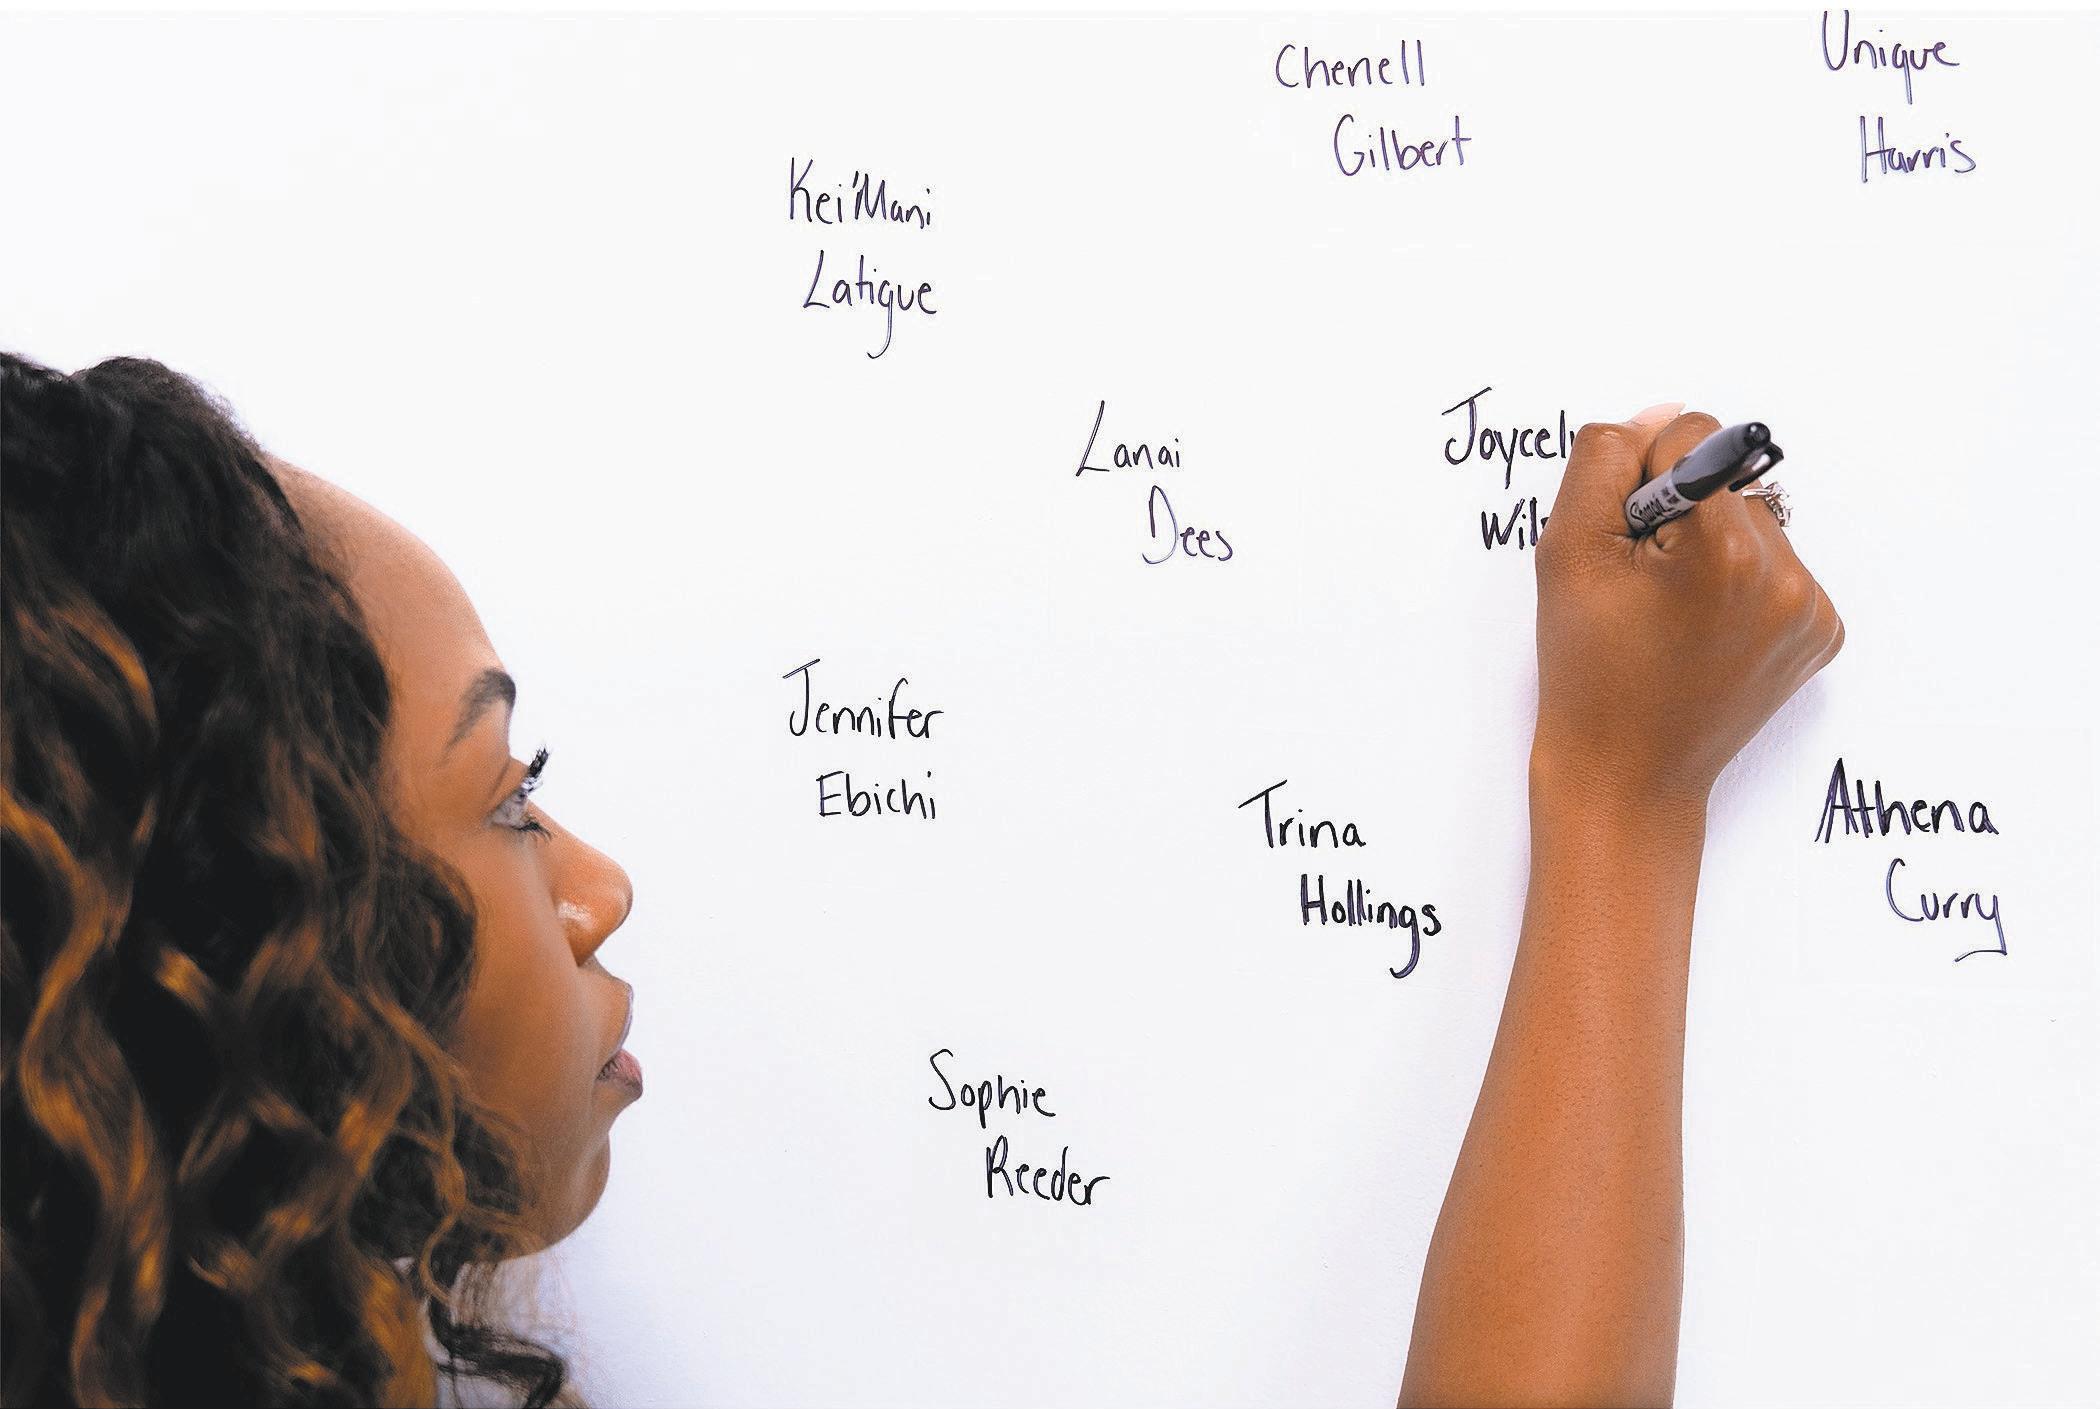 Chenell
Gilbert
Unique
Harris
Kei'Mani
Latigue
Lanai
Dees
Jennifer
Ebichi
Trina
Hollings
Athena
Curry
Sophie
Reeder